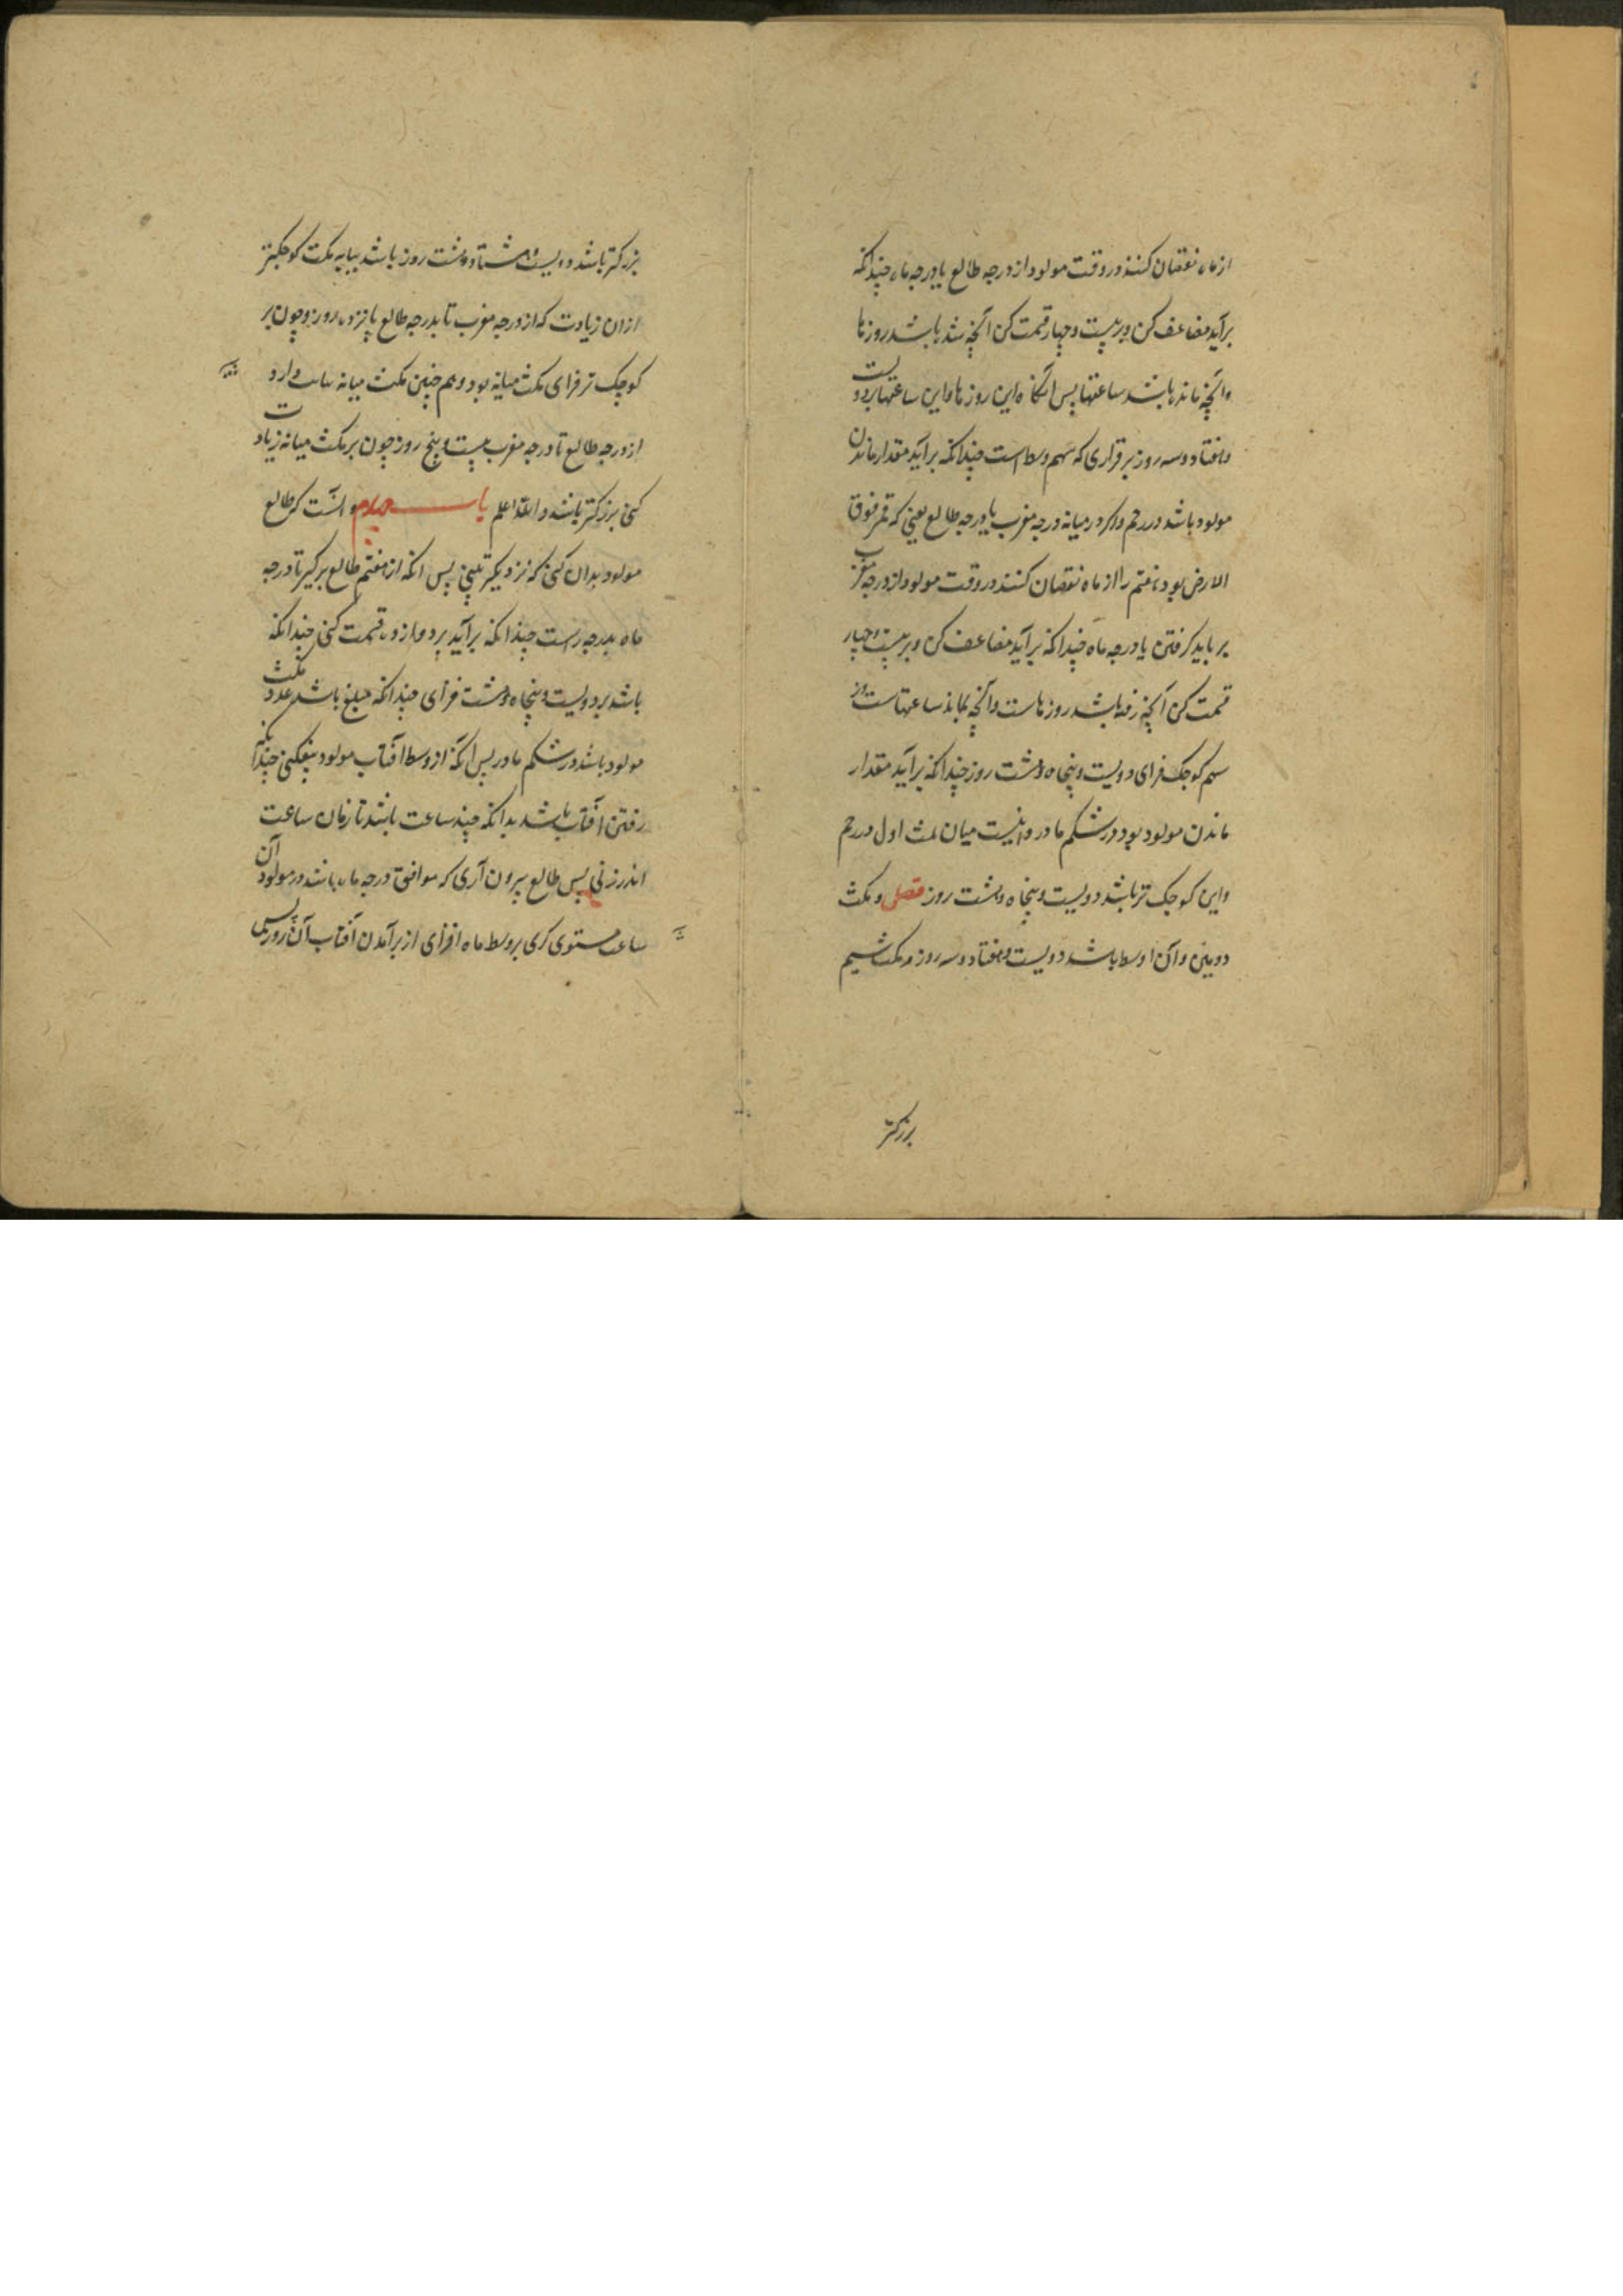 از ماه نقصان کنند در وقت مولود از درجه طالع یا درجه ماه چندانکه
برآید مضاعف کن و بر بیست و چهار قسمت کن آنچه شد باشد روزها
وآنچه ماند باشد ساعتها پس آنگاه این روزها و این ساعتها بر دویست
و هفتاد و سه روز برقراری که سهم وسط است چندانکه برآید مقدار ماندن
مولود باشد در رحم و اگر در میانه درجه مغرب یا درجه طالع یعنی که قمر فوق
الارض بود هفتم را از ماه نقصان کنند در وقت مولود از درجه مغرب
بر باید گرفتن یا درجه ماه چندانکه برآید مضاعف کن و بر بیست و چهار
قسمت کن آنچه رفته باشد روزهاست وآنچه بماند ساعتهاست
سهم کوچک فزای دویست و پنجاه و هشت روز چندانکه برآید مقدار
ماندن مولود بود در شکم مادر و اینست میان مکث اول در رحم
و این کوچک تر باشد دویست و پنجاه و هشت روز فصل و مکث
دومین و آن اوسط باشد دویست و هفتاد و سه روز و مکث سیم
بزرکتر
بزرکتر باشد دویست و هشتاد و هشت روز باشد مکث کوچکتر
ازان زیادت که از درجه مغرب تا بدرجه طالع پانزده روز و چون بر
کوچک تر فزای مکث میانه بود و هم چنین مکث میانه دارد
از درجه طالع تا درجه مغرب بیست و پنج روز چون بر مکث میانه زیادت
کنی بزرکتر باشد والله اعلم باب چهارم و انست کی طالع
مولود بدان کنی که نزدیکتر بینی پس انکه از هفتم طالع برگیر تا درجه
ماه بدرجه راست چندانکه برآید بر دوازده قسمت کنی چندانکه
باشد بر دویست و پنجاه و هشت فزای چندانکه مبلغ باشد عدد مکث
مولود باشد در شکم مادر پس آنکه از وسط آفتاب مولود بیفکنی چندانکه
رفتن آفتاب باشد بدانکه چند ساعت باشد تا زمان ساعت
اندر زنی پس طالع بیرون آری که موافق درجه ماه باشد در مولود آن
ساعت مستوی کری بر وسط ماه افزای از برآمدن آفتاب آن روز پس